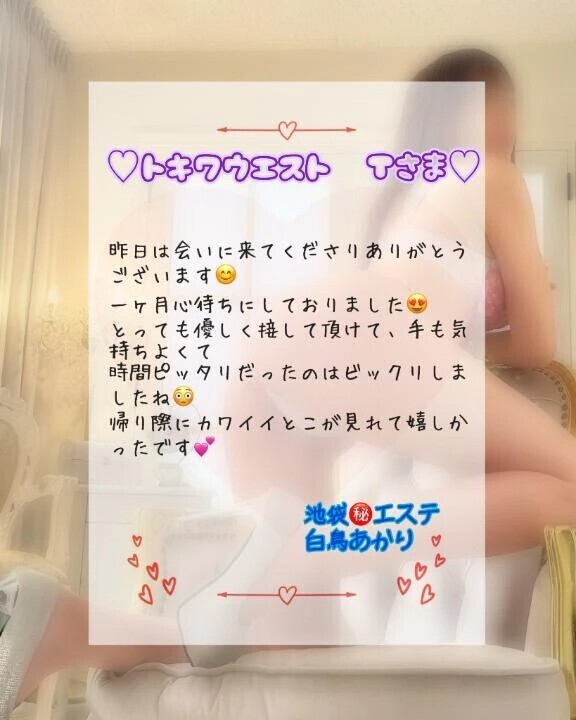 ♡トキワウエスト Tさま♡
昨日は会いに来てくださりありがとう
ございます😊
一ヶ月心待ちにしておりました😍
とっても優しく接して頂けて、手も気
持ちよくて
時間ピッタリだったのはビックリしま
したね😳
帰り際にカワイイとこが見れて嬉しか
ったです💕
池袋㊙️エステ
白鳥あかり